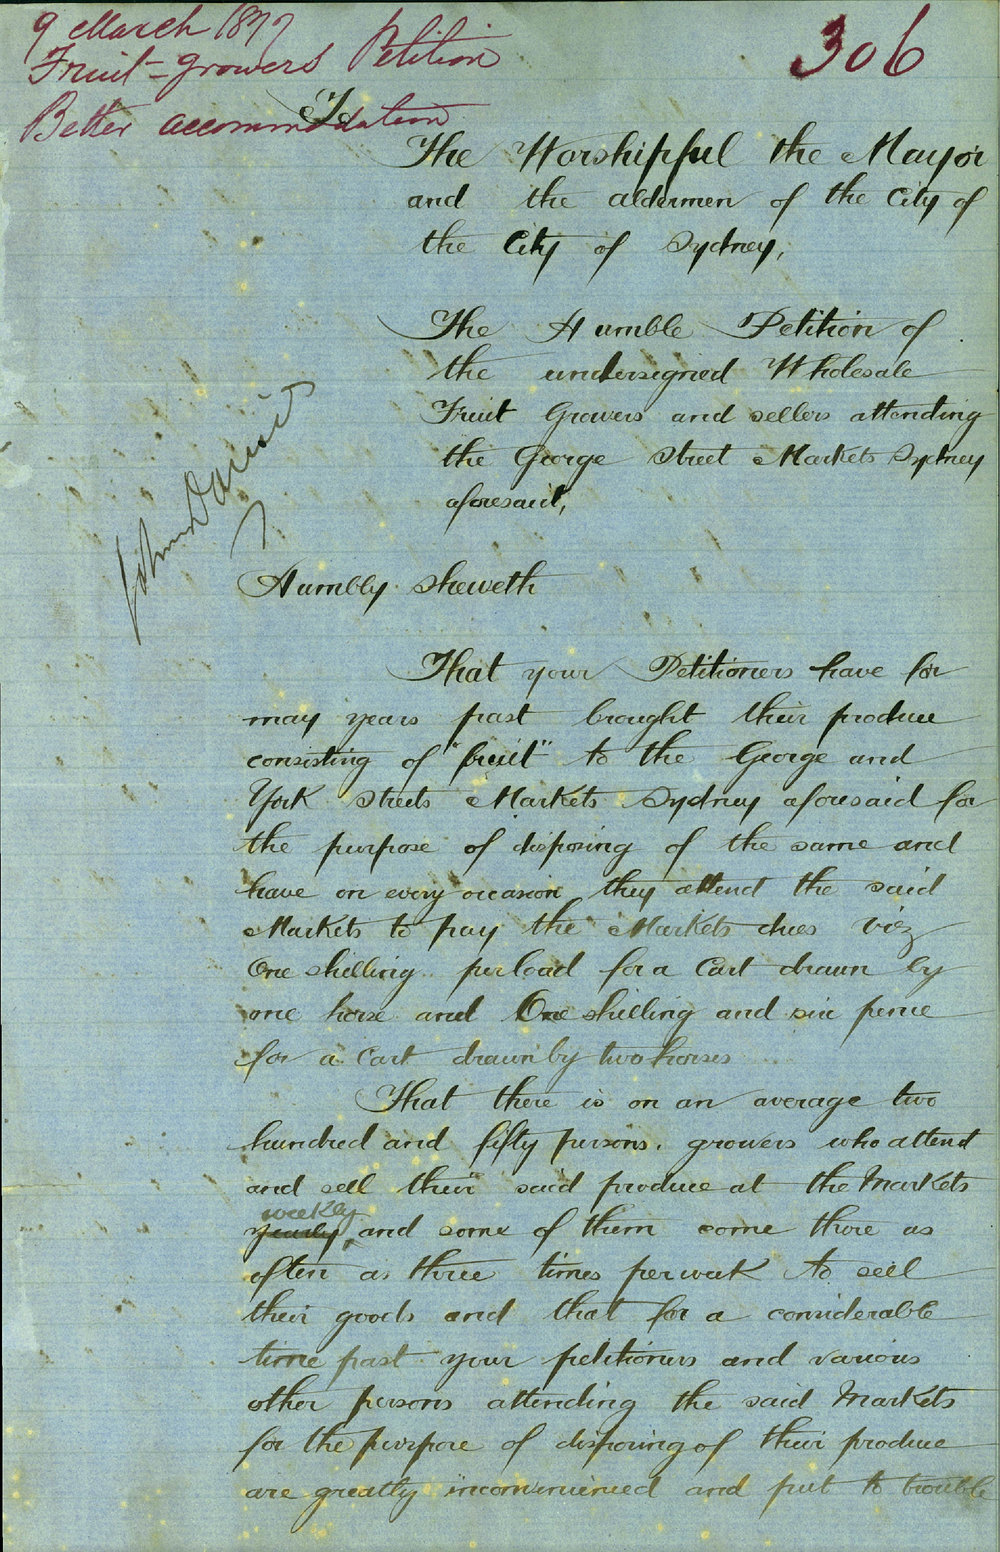 9 March 1877
306
Fruit-growers Petition
Better accommodation
To
The Worshipful the Mayor
and the aldermen of the City of
the City of Sydney,
The Humble Petition of
the undersigned Wholesale
Fruit Growers and sellers attending
the George Street Markets Sydney
aforesaid,
John Daniels
Humbly Sheweth
That your Petitioners have for
may years past brought their produce
consisting of "fruit" to the George and
York Streets Markets Sydney aforesaid for
the purpose of disposing of the same and
have on every occasion they attend the said
Markets to pay the Markets dues viz
One shilling per load for a Cart drawn by
one horse and One shilling and six pence
for a Cart drawn by two horses
That there is on an average two
hundred and fifty persons, growers who attend
and sell their said produce at the Markets
weekly
yearly, and some of them come there as
often as three times per week to sell
their goods and that for a considerable
time past your petitioners and various
other persons attending the said Markets
for the purpose of disposing of their produce
are greatly inconvenienced and put to trouble